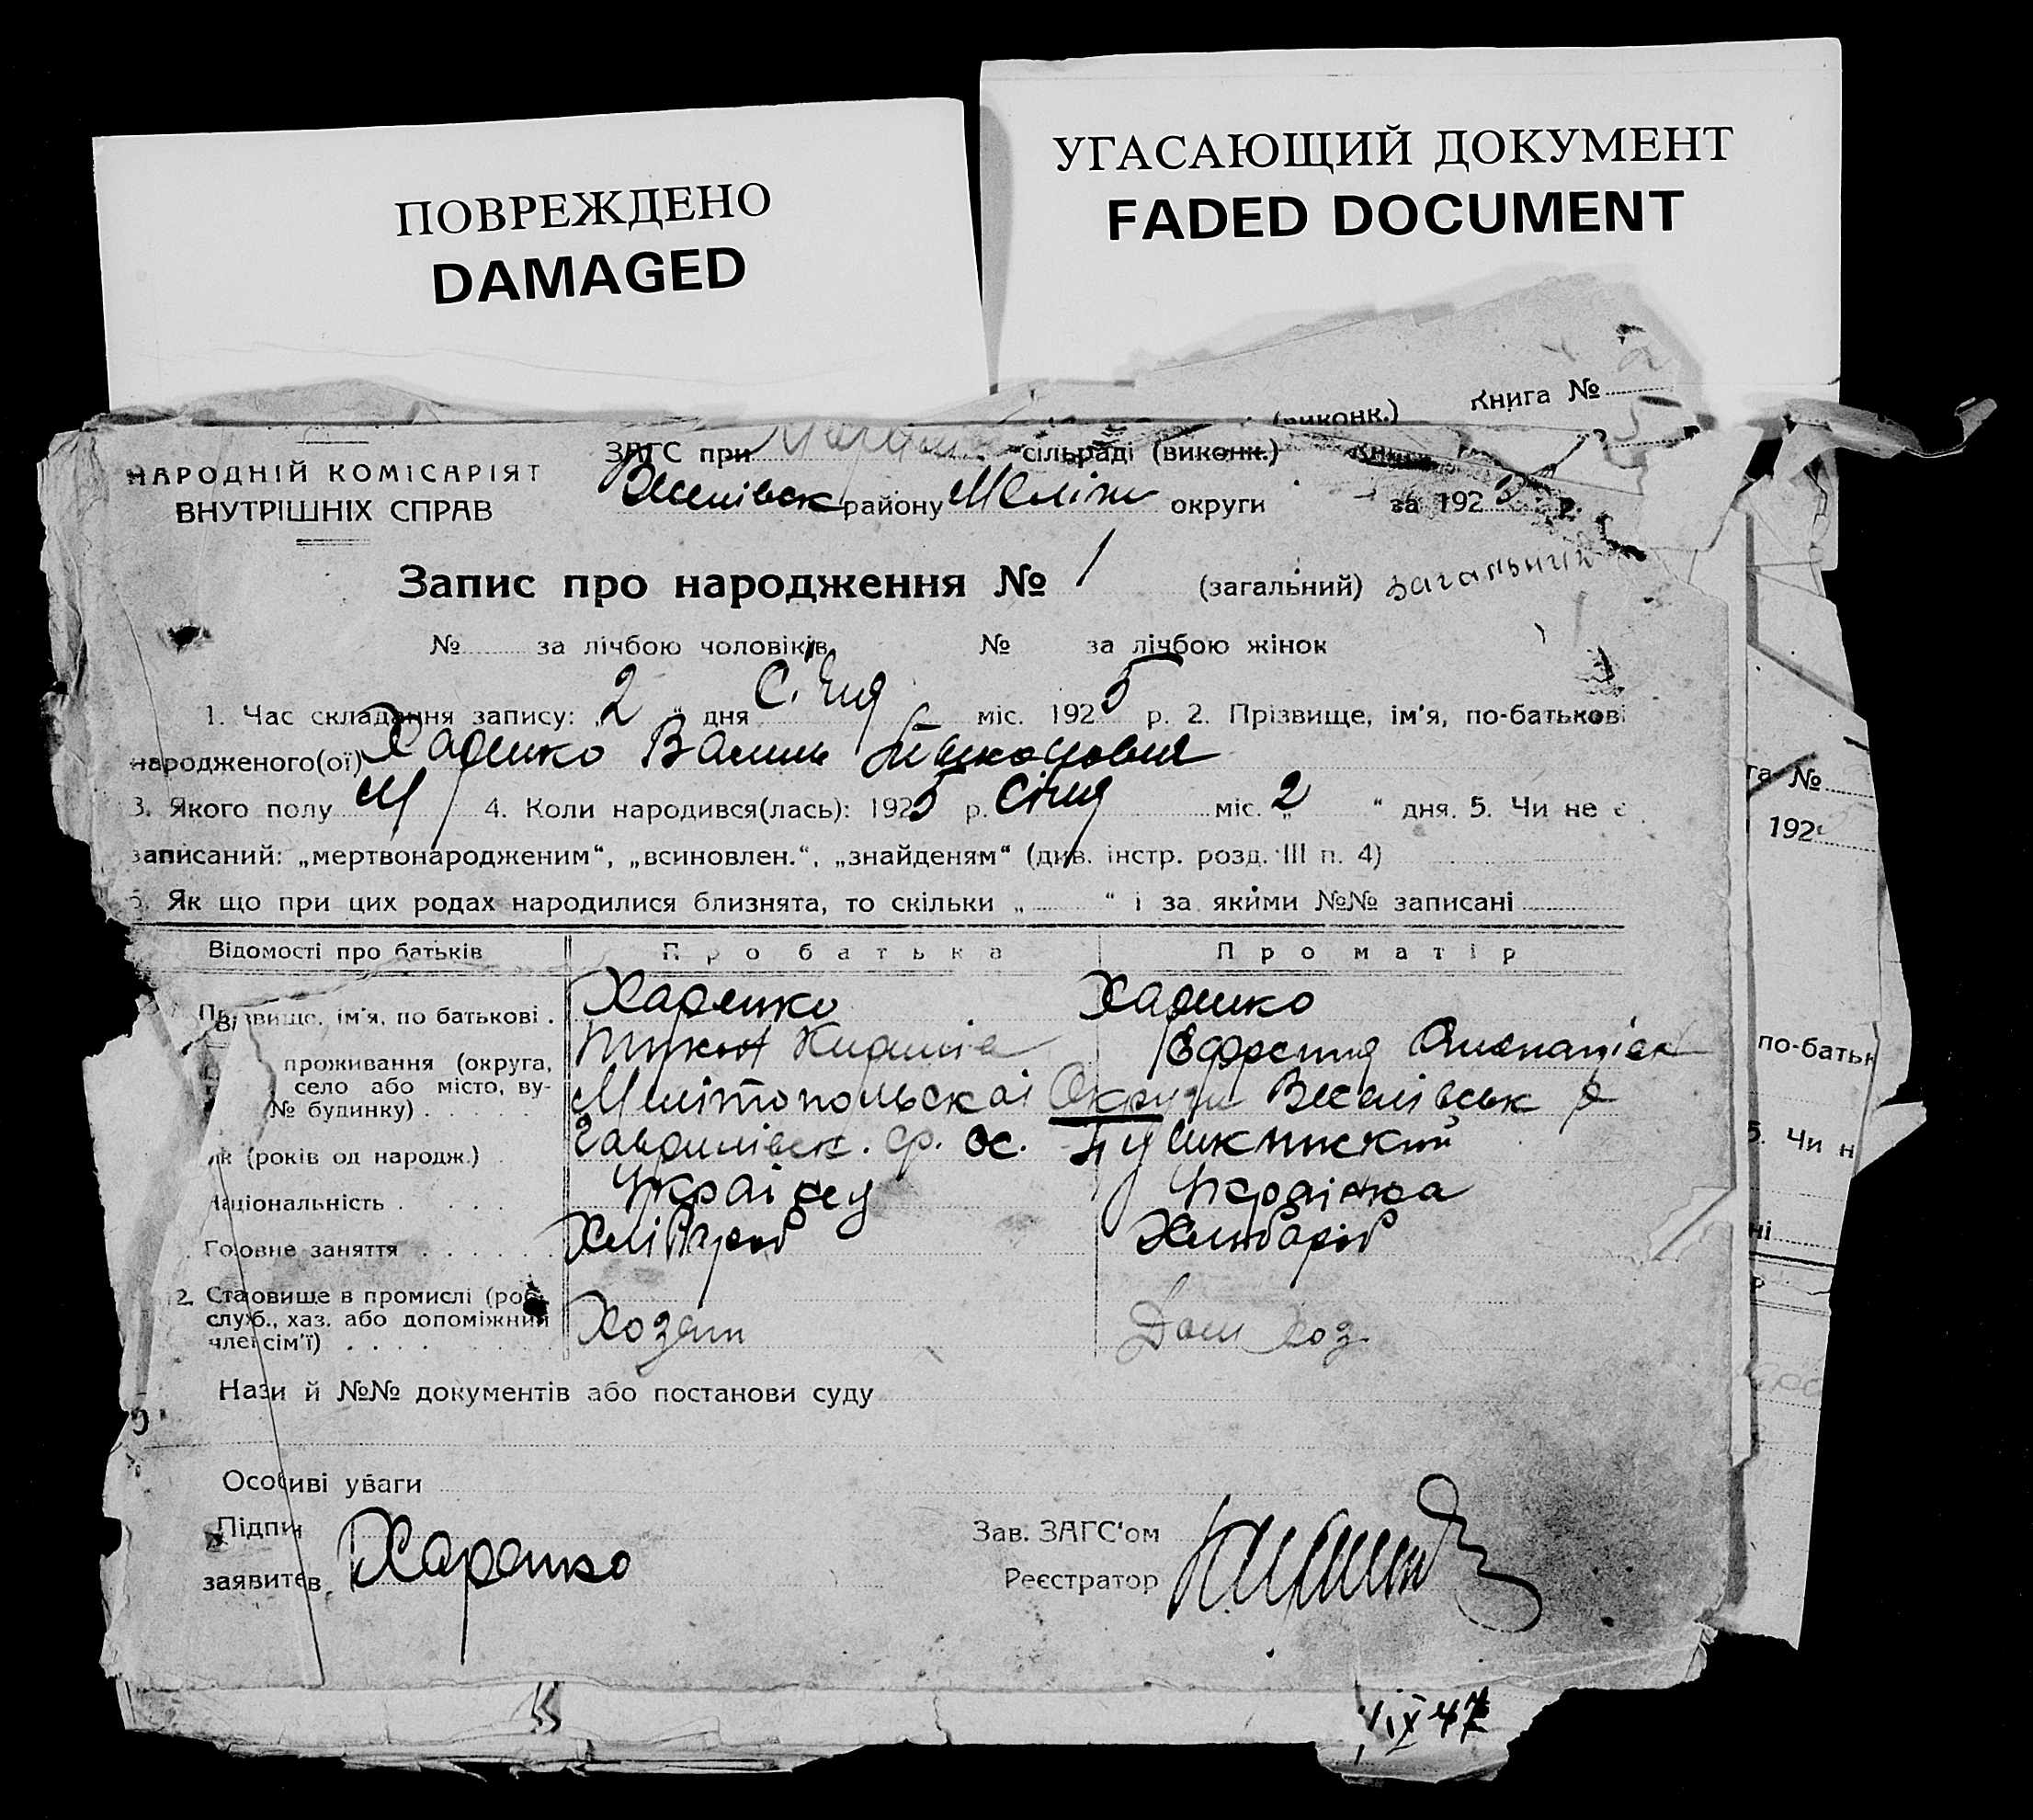 ПОВРЕЖДЕНО
DAMAGED
УГАСАЮЩИЙ ДОКУМЕНТ
FADED DOCUMENT
Книга №
(виконк.)
НАРОДНІЙ КОМІСАРІЯТ
ВНУТРІШНІХ СПРАВ
ЗАГС при сільраді (виконк.)
району Меліт округи за 192 р.
Запис про народження № 1 (загальний) загальний
№ за лічбою чоловіків № за лічбою жінок
1. Час складання запису: „2“ дня Січня міс. 1925 р. 2. Прізвище, ім'я, по-батькові
народженого(ої) Харенко Василь
3. Якого полу М 4. Коли народився(лась): 1925 р. Січня міс. „2“ дня. 5. Чи не є
записаний: „мертвонародженим“, „всиновлен.“, „знайденям“ (див. інстр. розд. III п. 4)
6. Як що при цих родах народилися близнята, то скільки „ “ і за якими №№ записані
Відомості про батьків Про батька Про матір
Прізвище, ім'я, по батькові . Харенко Харенко
проживання (округа,
село або місто, ву-
№ будинку) . . . . . Мелітопольскої Округи Веселівськ р
(років од народж.) Гаврилівск. ос.
Національність . . . . Українец Українка
Головне заняття . . . . . . Хлібороб Хлібороб
2. Становище в промислі (роб.,
служб., хаз. або допоміжний
член сім'ї) . . . . Хозяин Дом хоз.
Назви й №№ документів або постанови суду
Особиві уваги
Підпи
заявител Харенко
Зав. ЗАГС'ом
Реєстратор
IX 47
№
192
по-батьк
5. Чи н
ні